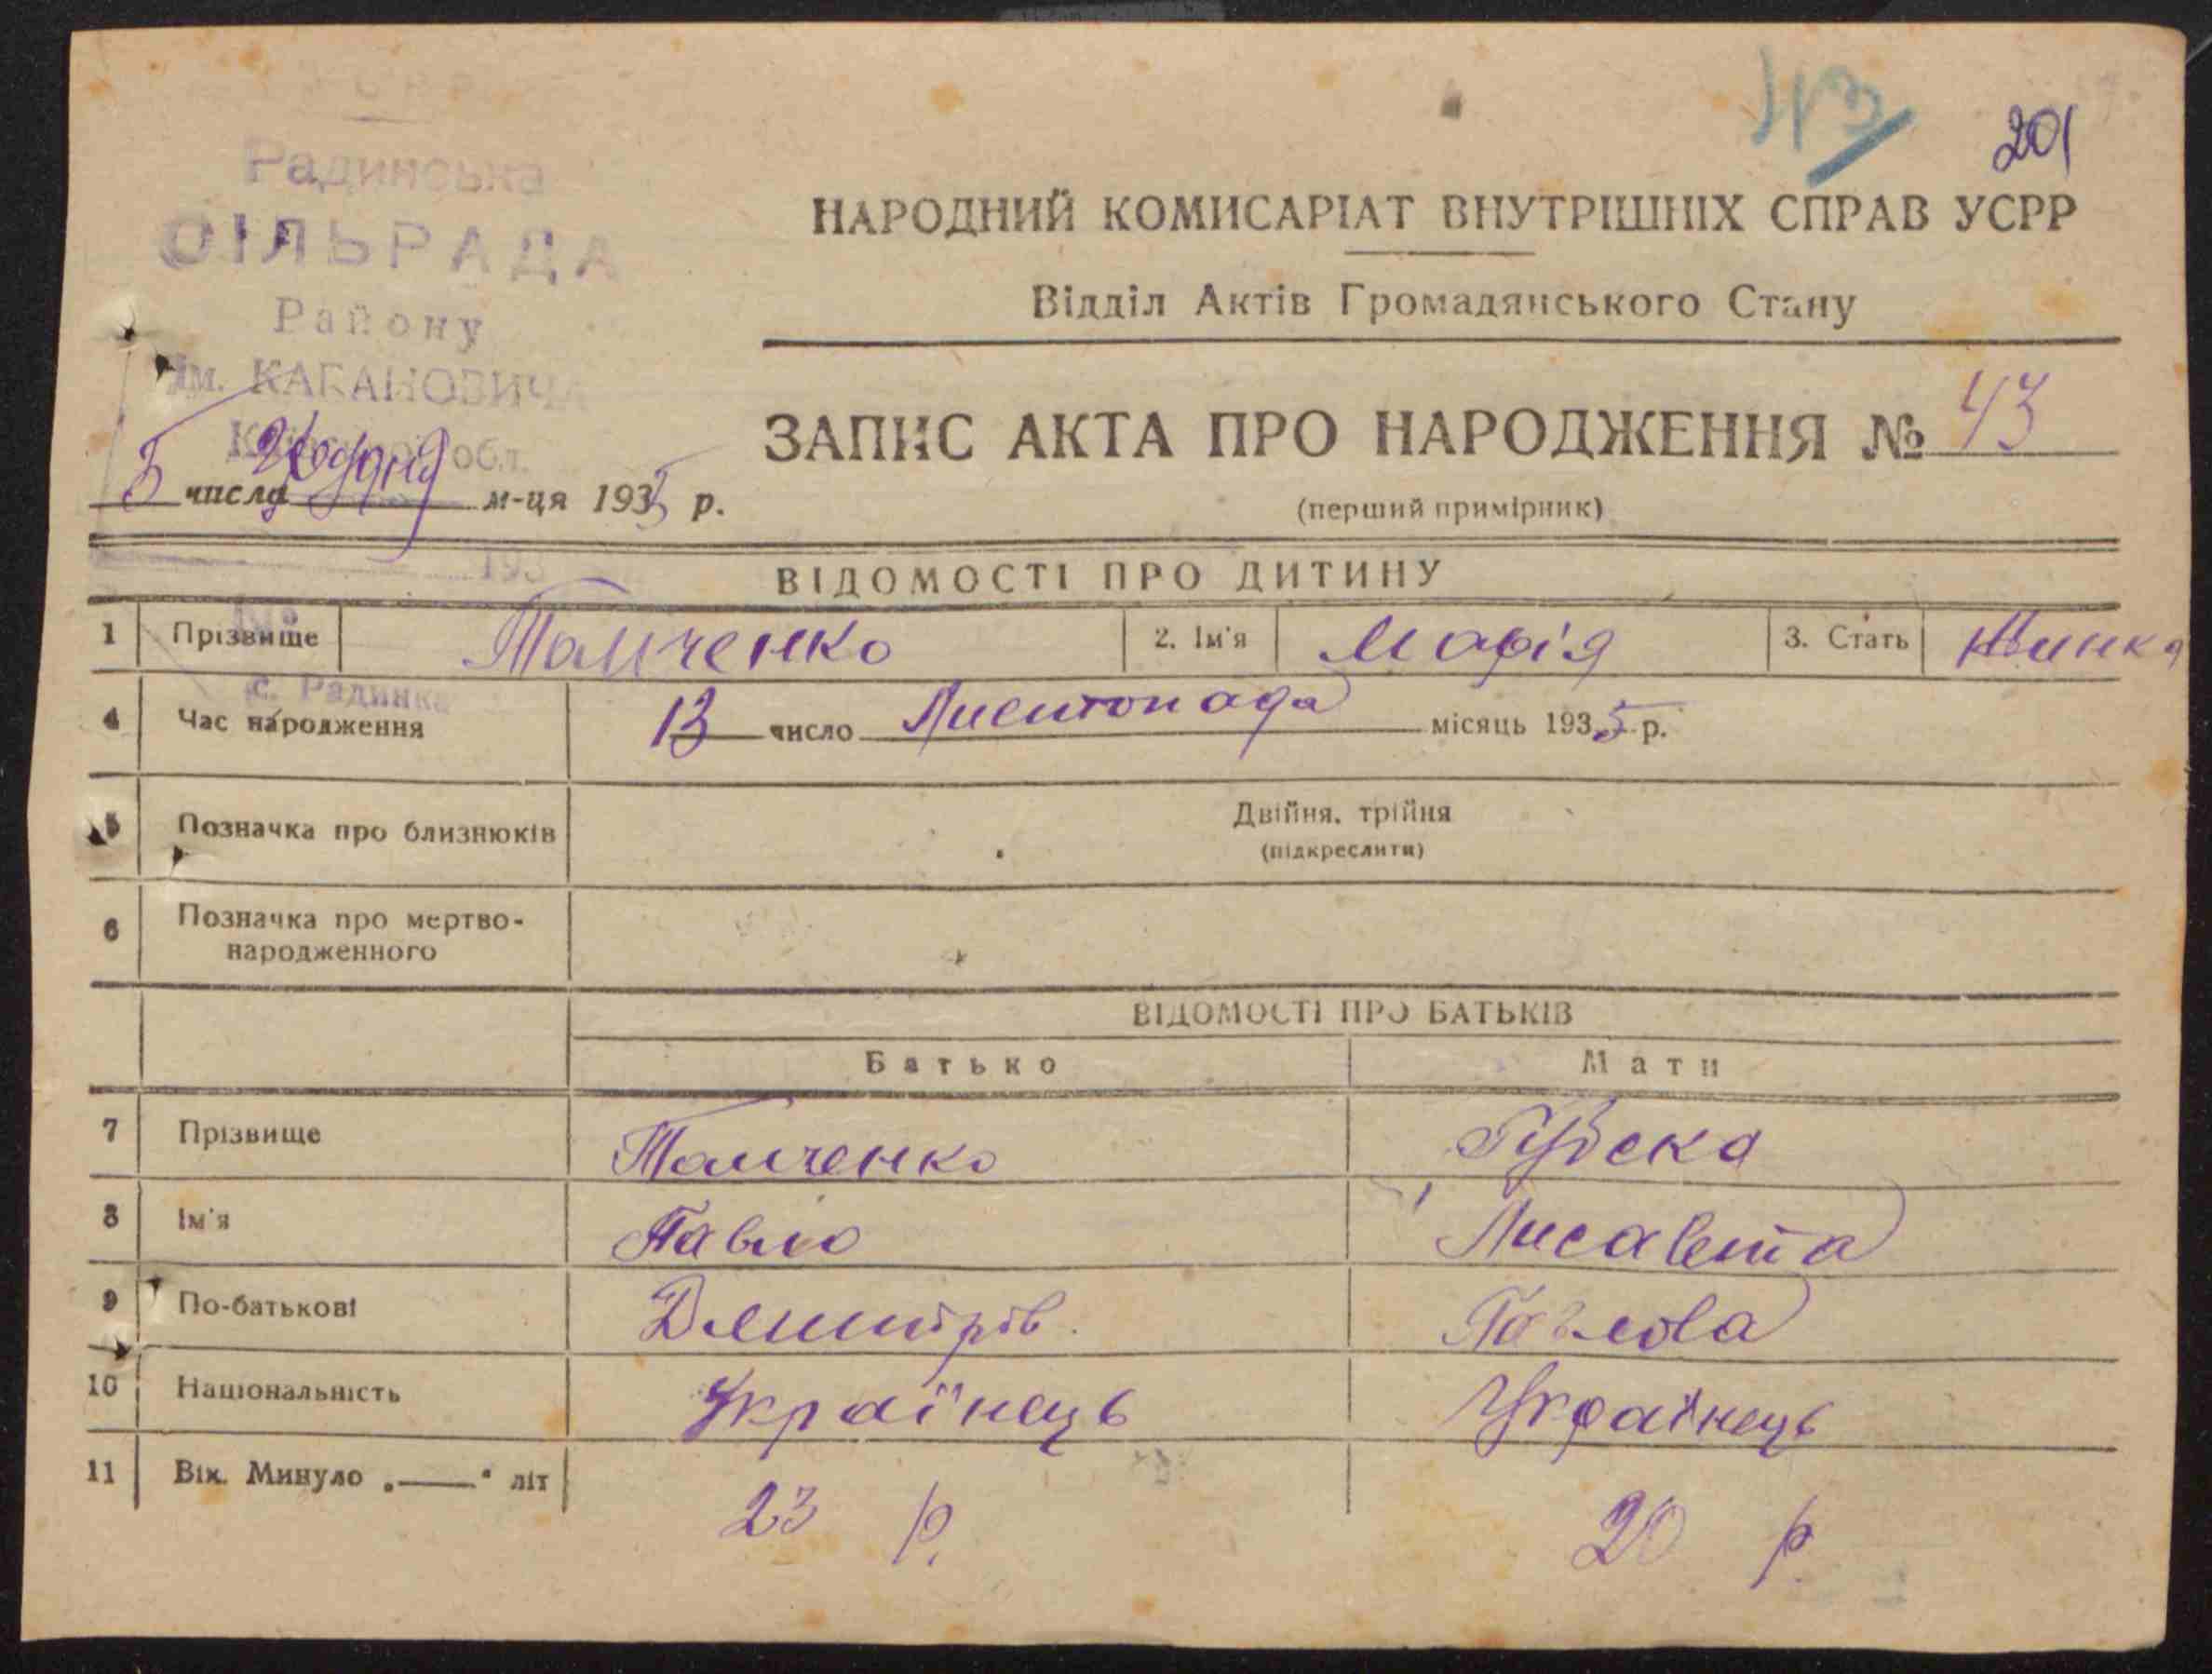 43
201
УСРР
Радинська
СІЛЬРАДА
Району
Ім. КАГАНОВИЧА
Київської обл.
193
№
с. Радинка
НАРОДНИЙ КОМИСАРІАТ ВНУТРІШНІХ СПРАВ УСРР
Відділ Актів Громадянського Стану
ЗАПИС АКТА ПРО НАРОДЖЕННЯ № 43
(перший примірник)
5 числа Грудня м-ця 1935 р.
ВІДОМОСТІ ПРО ДИТИНУ
1 Прізвище Томченко 2. Ім'я Марія 3. Стать Жинка
4 Час народження 13 число Листопада місяць 1935 р.
5 Позначка про близнюків Двійня, трійня
(підкреслити)
6 Позначка про мертво-
народженного
ВІДОМОСТІ ПРО БАТЬКІВ
Батько Мати
7 Прізвище Томченко
8 Ім'я Павло Лисавета
9 По-батькові Дмитрів Павлова
10 Національність Українець Українець
11 Вік. Минуло „—" літ 23 р. 20 р.